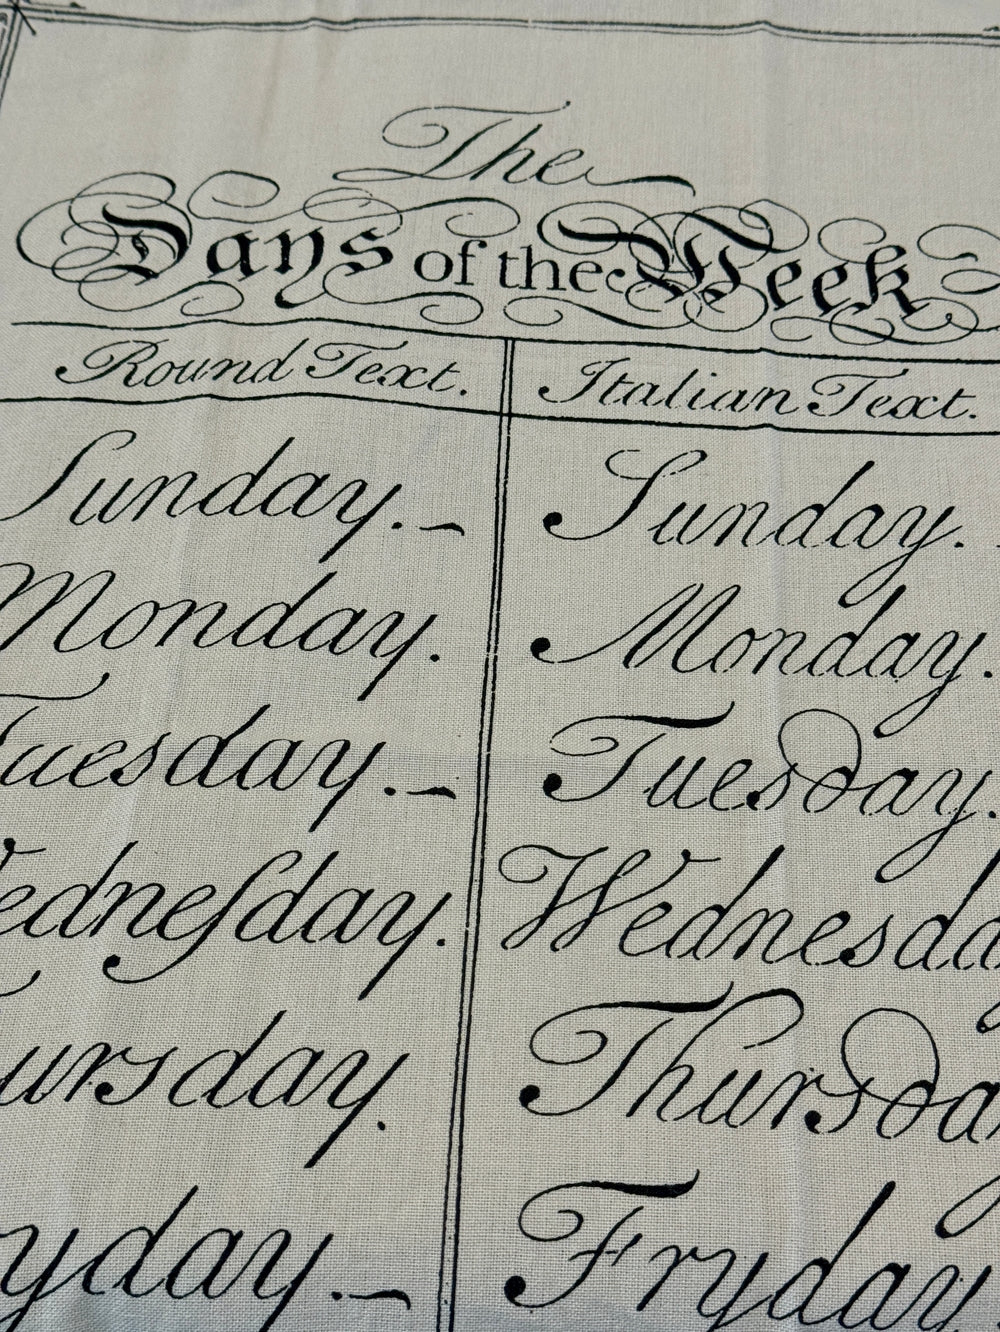 The
Days of the Week
Round Text. Italian Text.
Sunday. Sunday.
Monday. Monday.
Tuesday. Tuesday.
Wedneſday. Wednesday
Thursday. Thursday
Fryday Fryday